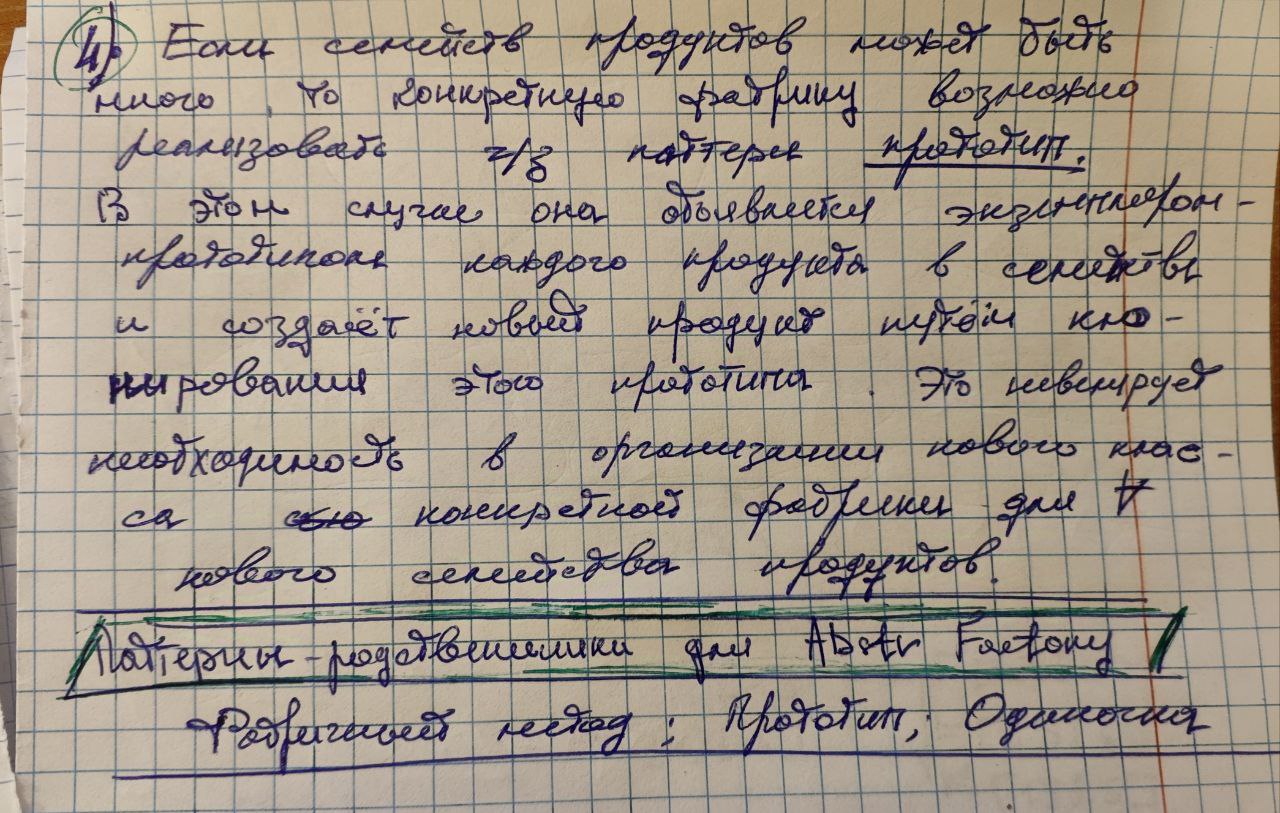 4) Если семейств продуктов может быть
много, то конкретную фабрику возможно
реализовать ч/з паттерн прототип.
В этом случае она объявляется экземпляром-
прототипом каждого продукта в семействе
и создаёт новый продукт путём кло-
нирования этого прототипа. Это нивелирует
необходимость в организации нового клас-
са конкретной фабрики для ∀
нового семейства продуктов.
Паттерны-родственники для Abstr Factory
Фабричный метод; Прототип; Одиночка